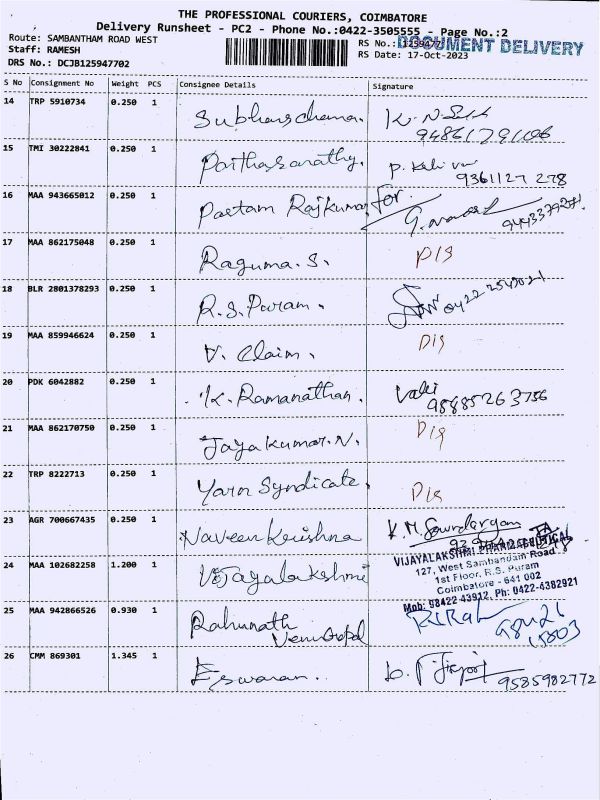 THE PROFESSIONAL COURIERS, COIMBATORE
Delivery Runsheet - PC2 - Phone No.:0422-3505555 - Page No.:2
Route: SAMBANTHAM ROAD WEST
RS No.: DOCUMENT DELIVERY
Staff: RAMESH
RS Date: 17-Oct-2023
DRS No.: DCJB125947702
S No Consignment No Weight PCS Consignee Details Signature
14 TRP 5910734 0.250 1
15 TMI 30222841 0.250 1 Parthasarathy.
9361127 278
16 MAA 943665012 0.250 1 Pretam Rajkumar for.
17 MAA 862175048 0.250 1 Raguma. S. D/S
18 BLR 2801378293 0.250 1 R.S. Puram. 0422-2549021
19 MAA 859946624 0.250 1 V. Claim. D/S
20 PDK 6042882 0.250 1 K. Ramanathan. Valli
9588526 3756
21 MAA 862170750 0.250 1 Jayakumar. N. D/S
22 TRP 8222713 0.250 1 Yarn Syndicate. D/S
23 AGR 700667435 0.250 1 Naveen Krishna K. M. Soundaryam
24 MAA 102682258 1.200 1 Vijayalakshmi
VIJAYALAKSHMI PHARMACEUTICAL
127, West Sambandam Road
1st Floor, R.S. Puram
Coimbatore - 641 002
Mob: 98422 43912, Ph: 0422-4382921
25 MAA 942866526 0.930 1 Rahunath
Venugopal
26 CMM 869301 1.345 1 Eswaran.
9585982772